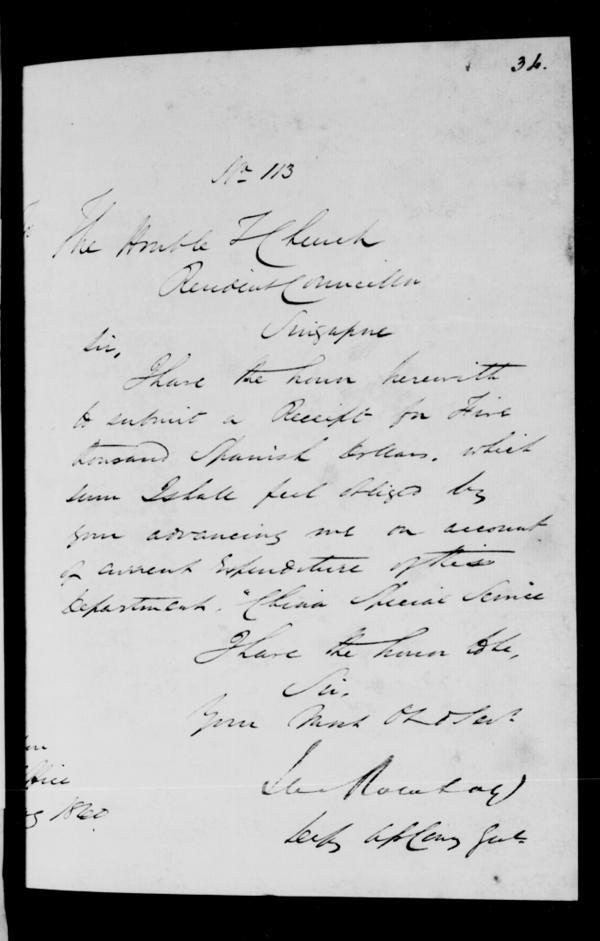 36.
No 113
The Honble T Church
Resident Councillor
Singapore
Sir,
I have the honor herewith
to submit a Receipt for Five
thousand Spanish Dollars, which
sum I shall feel obliged by
your advancing me on account
of current Expenditure of this
Department. "China Special Service
I have the honor to be,
Sir,
Your Most Obdt Servt
Depy Asst Comy Genl
ffice
1840